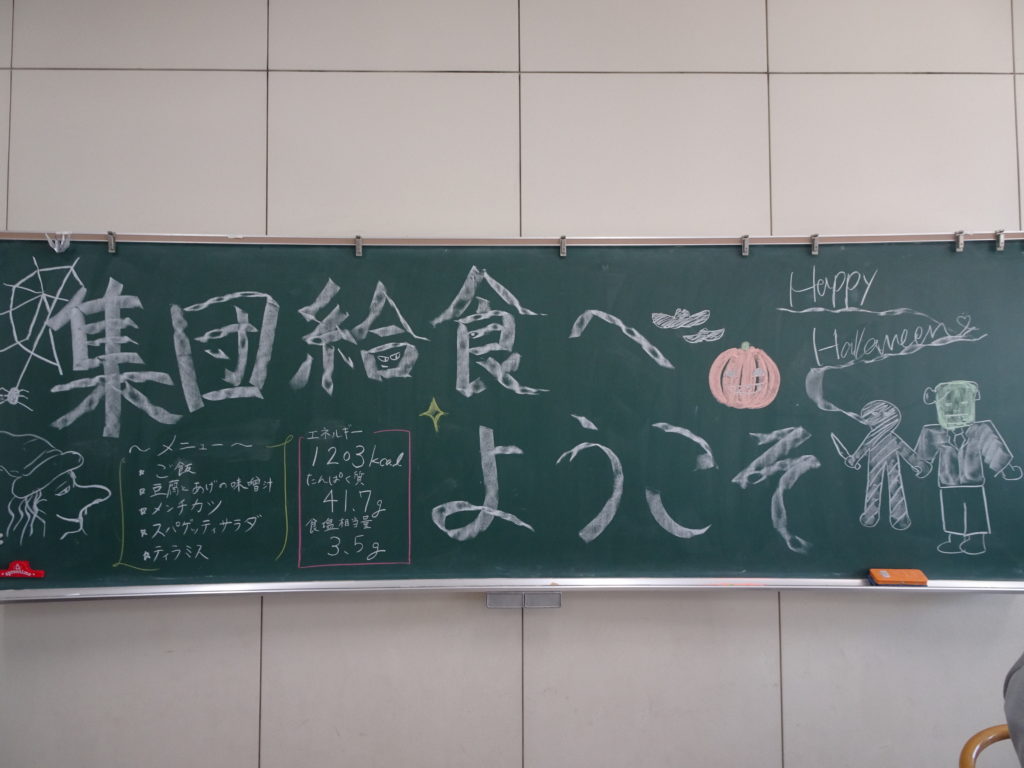 集団給食へ
ようこそ
Happy
Halloween
～メニュー～
ご飯
豆腐とあげの味噌汁
メンチカツ
スパゲッティサラダ
ティラミス
エネルギー
1203kcal
たんぱく質
41.7g
食塩相当量
3.5g